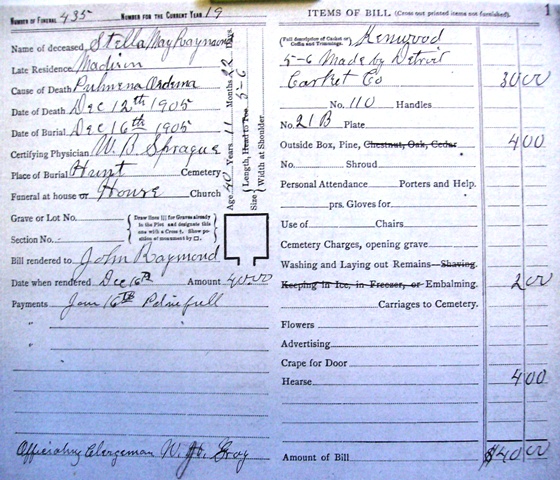 NUMBER OF FUNERAL 435 NUMBER FOR THE CURRENT YEAR 19
Name of deceased Stella May Raymond
Late Residence Madison
Cause of Death Pulmena Oedema
Date of Death Dec 12th 1905
Date of Burial Dec 16th 1905
Certifying Physician W. B. Sprague
Place of Burial Hunt Cemetery
Funeral at house or House Church
Age 40 Years 11 Months 22 Days
Size { Length, Head to Toe 5-6
Width at Shoulder
Grave or Lot No.
Section No.
{ Draw lines ||| for Graves already in the Plot and designate this one with a Cross †. Show position of monument by □. }
Bill rendered to John Raymond
Date when rendered Dec 16th Amount 40.00
Payments Jan 16th Pd in full
"
"
Officiating Clergeman W. H. Gray
ITEMS OF BILL (Cross out printed items not furnished). 1
(Full description of Casket or Coffin and Trimmings. Kenwood
5-6 Made by Detroit
Casket Co 30 00
No. 110 Handles
No. 21 B Plate
Outside Box, Pine, Chestnut, Oak, Cedar 4 00
No. Shroud
Personal Attendance Porters and Help.
prs. Gloves for
Use of Chairs
Cemetery Charges, opening grave
Washing and Laying out Remains Shaving.
Keeping in Ice, in Freezer, or Embalming. 2 00
Carriages to Cemetery.
Flowers
Advertising
Crape for Door
Hearse 4 00
Amount of Bill $40 00